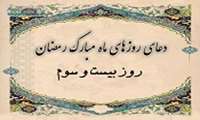 دعای روزهای ماه مبارک رمضان
روز بیست و سوم